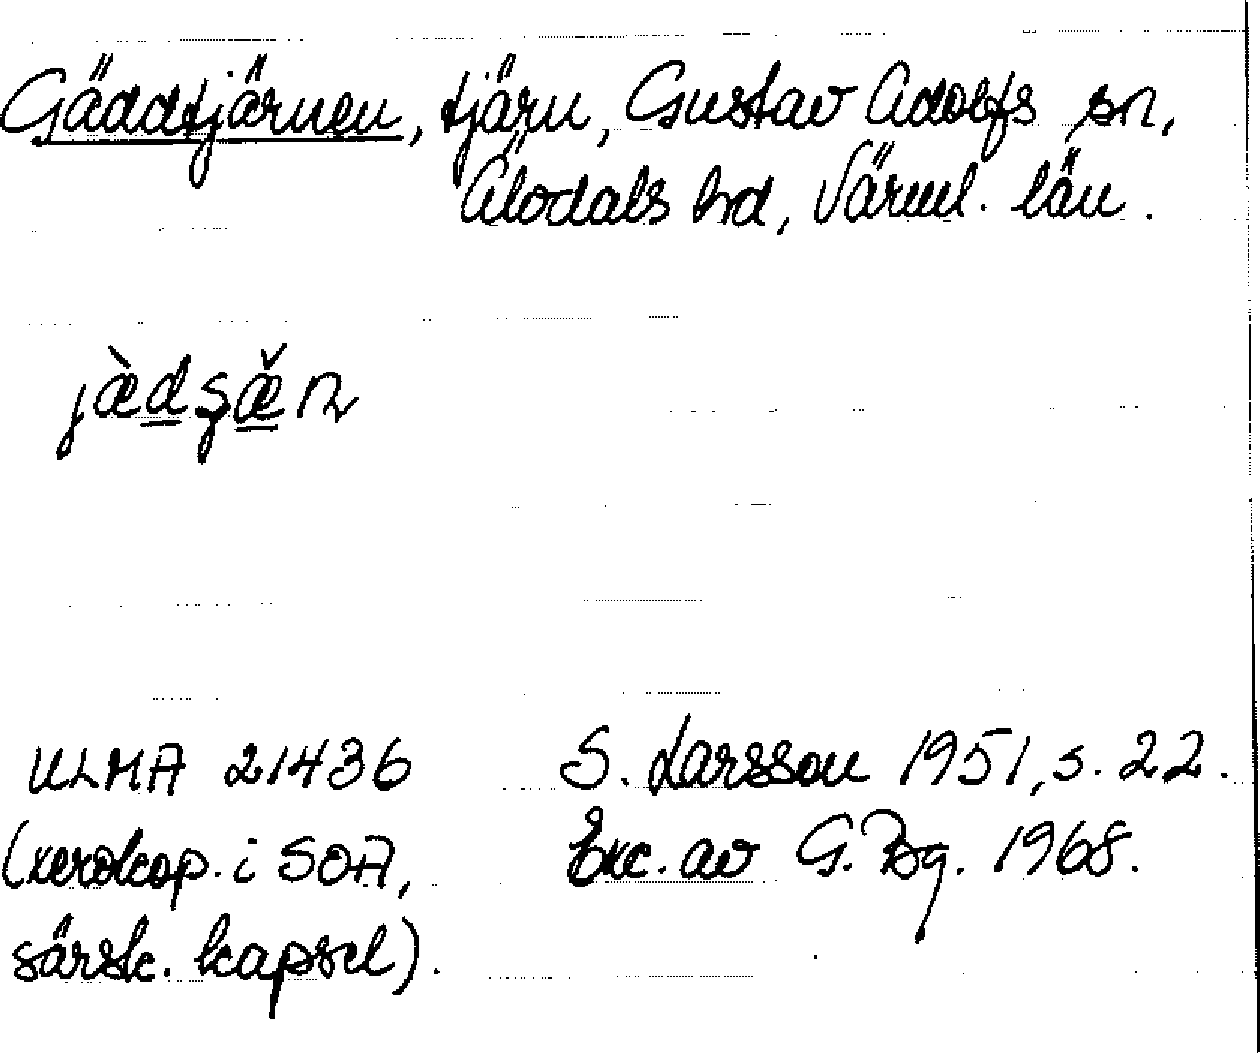 Gäddtjärnen, tjärn, Gustav Adolfs sn,
Älvdals hd, Värml. län.
ULMA 21436 S. Larsson 1951, s. 22.
(xerokop. i SOA, Exc. av G. Bg. 1968.
särsk. kapsel).